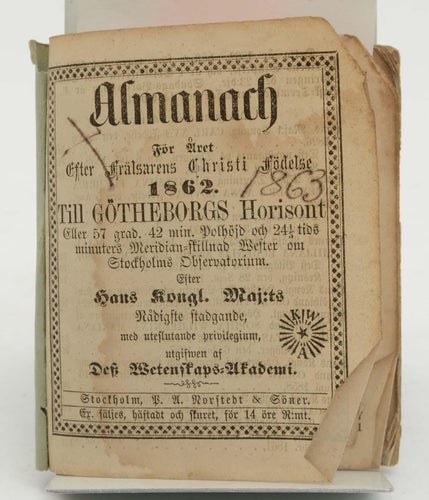 Almanach
För Året
Efter Frälsarens Christi Födelse
1862. 1863
Till GÖTHEBORGS Horisont
Eller 57 grad. 42 min. Polhöjd och 24½ tids
minuters Meridian-skillnad Wester om
Stockholms Observatorium.
Efter
Hans Kongl. Maj:ts
Nådigste stadgande,
med uteslutande privilegium,
utgifwen af
Deß Wetenskaps-Akademi.
K W A
Stockholm, P. A. Norstedt & Söner.
Ex. säljes, häftadt och skuret, för 14 öre R:mt.